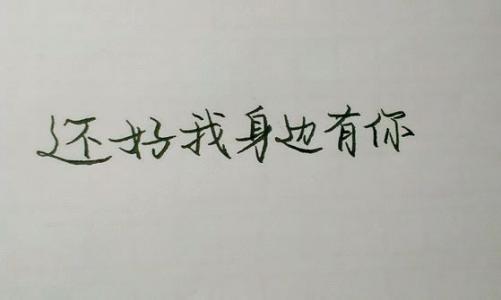 还好我身边有你